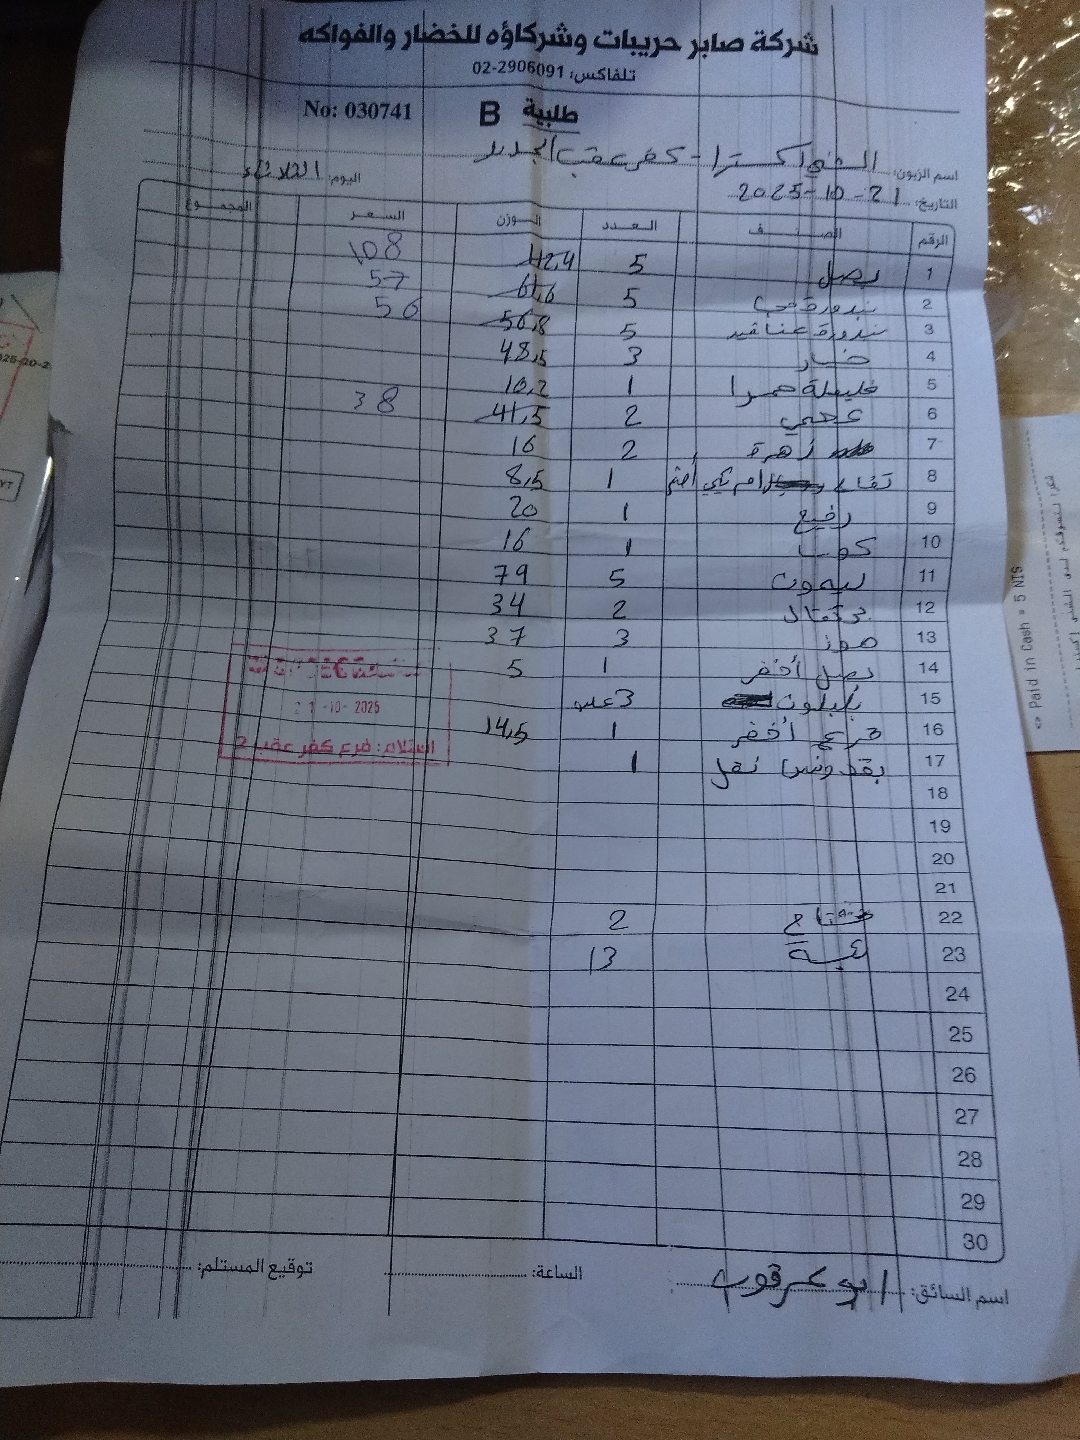 شركة صابر حريبات وشركاؤه للخضار والفواكه
تلفاكس: 02-2906091
طلبية B No: 030741
اسم الزبون: الشني اكسترا - كفر عقب الجديد
التاريخ: 21-10-2025 اليوم: الثلاثاء
الرقم الصنف العدد الوزن السعر المجموع
1 بصل 5 112,4 108
2 بندورة حب 5 61,6 57
3 بندورة عناقيد 5 56,8 56
4 خيار 3 48,5
5 فليفلة حمرا 1 10,2
6 عجمي 2 41,5 38
7 زهرة 2 16
8 تفاح 1 8,5
9 رفيع 1 20
10 كوسا 1 16
11 ليمون 5 79
12 برتقال 2 34
13 موز 3 37
14 بصل أخضر 1 5
15 3
16 قرع أخضر 1 14,5
17 بقدونس نقل 1
18
19
20
21
22 مشتاح 2
23 عبية 13
24
25
26
27
28
29
30
21-10-2025
استلام: فرع كفر عقب 2
اسم السائق: ابو عرقوب الساعة: توقيع المستلم:
Paid in Cash = 5 NIS